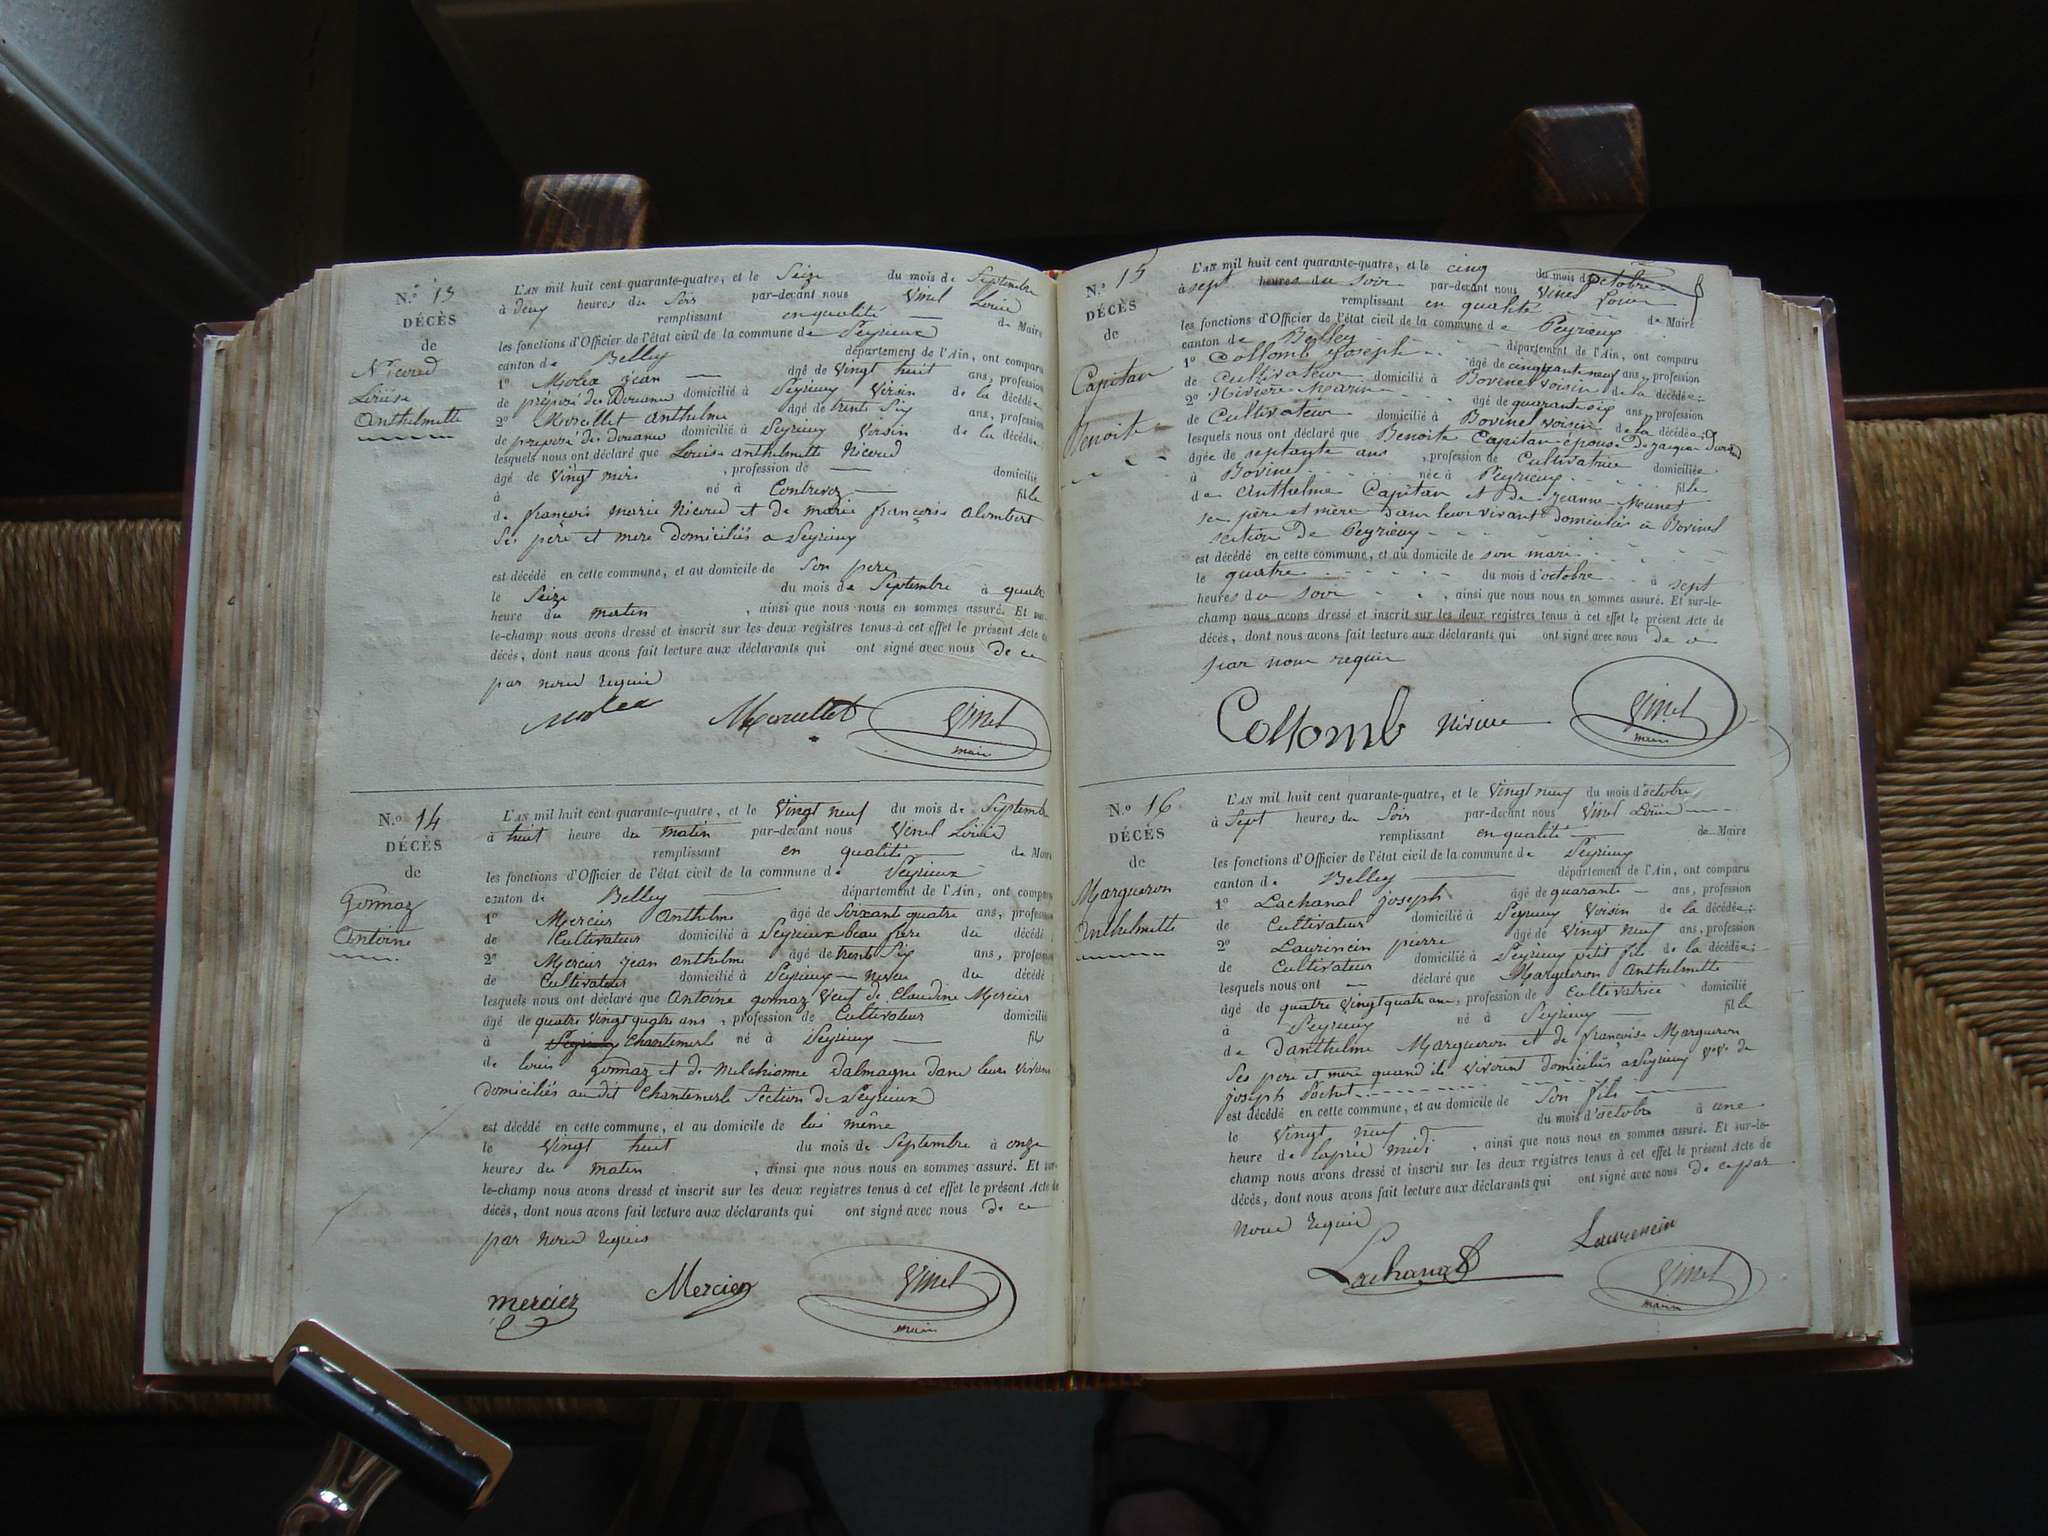 N.o 13
DÉCÈS
de
Nicoud
Louise
Anthelmette
L'AN mil huit cent quarante-quatre, et le Seize du mois de Septembre
à deux heures du Soir par-devant nous Vinel Louis
remplissant en qualité de Maire
les fonctions d'Officier de l'état civil de la commune de Peyrieux
canton de Belley département de l'Ain, ont comparu
1o jean âgé de vingt huit ans, profession
de préposé des Douanes domicilié à Peyrieux Voisin de la décédée
2o anthelme âgé de trente Six ans, profession
de préposé des douanes domicilié à Peyrieux Voisin de la décédée
lesquels nous ont déclaré que Louise anthelmette Nicoud
âgé de vingt mois , profession de domicilié
à né à Contrevoz fille
de françois marie Nicoud et de marie françoise alombert
Ses père et mere domiciliés a Peyrieux
est décédé en cette commune, et au domicile de Son pere
le Seize du mois de Septembre à quatre
heure du matin , ainsi que nous nous en sommes assuré. Et sur-
le-champ nous avons dressé et inscrit sur les deux registres tenus à cet effet le présent Acte de
décès, dont nous avons fait lecture aux déclarants qui ont signé avec nous de ce
par nous requis
Vinel
maire
N.o 14
DÉCÈS
de
Gonnaz
Antoine
L'AN mil huit cent quarante-quatre, et le Vingt neuf du mois de Septembre
à huit heure du matin par-devant nous Vinel Louis
remplissant en qualité de Maire
les fonctions d'Officier de l'état civil de la commune de Peyrieux
canton de Belley département de l'Ain, ont comparu
1o Mercier Anthelme âgé de Soixant quatre ans, profession
de Cultivateur domicilié à Peyrieux beau frère du décédé
2o Mercier jean anthelme âgé de trente Six ans, profession
de Cultivateur domicilié à Peyrieux neveu du décédé
lesquels nous ont déclaré que Antoine gonnaz Veuf de Claudine Mercier
âgé de quatre vingt quatre ans , profession de Cultivateur domicilié
à Peyrieux Chantemerle né à Peyrieux fils
de louis gonnaz et de Melchionne Dalmagne dans leurs vivant
domiciliés audit Chantemerle Section de Peyrieux
est décédé en cette commune, et au domicile de lui même
le Vingt huit du mois de Septembre à onze
heures du matin , ainsi que nous nous en sommes assuré. Et sur-
le-champ nous avons dressé et inscrit sur les deux registres tenus à cet effet le présent Acte de
décès, dont nous avons fait lecture aux déclarants qui ont signé avec nous de ce
par nous requis
mercier Mercier Vinel
maire
N.o 15
DÉCÈS
de
Capitan
Benoite
L'AN mil huit cent quarante-quatre, et le cinq du mois d'octobre
à sept heures du soir par-devant nous Vinel Louis
remplissant en qualité de Maire
les fonctions d'Officier de l'état civil de la commune de Peyrieux
canton de Belley département de l'Ain, ont comparu
1o Collomb Joseph âgé de cinquante neuf ans, profession
de Cultivateur domicilié à Bovinel voisin de la décédée;
2o Nivière Marin âgé de quarante six ans, profession
de Cultivateur domicilié à Bovinel voisin de la décédée;
lesquels nous ont déclaré que Benoite Capitan épouse de jacques
âgée de septante ans , profession de Cultivatrice domiciliée
à Bovinel née à Peyrieux fille
de Anthelme Capitan et de jeanne Meunet
ses père et mère dans leur vivant domiciliés à Bovinel
section de Peyrieux
est décédé en cette commune, et au domicile de son mari
le quatre du mois d'octobre à sept
heures du soir , ainsi que nous nous en sommes assuré. Et sur-le-
champ nous avons dressé et inscrit sur les deux registres tenus à cet effet le présent Acte de
décès, dont nous avons fait lecture aux déclarants qui ont signé avec nous de ce
par nous requis
Collomb Nivière Vinel
maire
N.o 16
DÉCÈS
de
Margueron
Anthelmette
L'AN mil huit cent quarante-quatre, et le Vingt neuf du mois d'octobre
à Sept heures du Soir par-devant nous Vinel Louis
remplissant en qualité de Maire
les fonctions d'Officier de l'état civil de la commune de Peyrieux
canton de Belley département de l'Ain, ont comparu
1o Lachanal joseph âgé de quarante ans, profession
de Cultivateur domicilié à Peyrieux Voisin de la décédée;
2o Laurencin pierre âgé de Vingt neuf ans, profession
de Cultivateur domicilié à Peyrieux petit fils de la décédée;
lesquels nous ont déclaré que Margueron Anthelmette
âgé de quatre Vingt quatre ans, profession de Cultivatrice domicilié
à Peyrieux né à Peyrieux fille
de D'anthelme Margueron et de françoise Margueron
Ses pere et mere quand ils vivoient domiciliés a Peyrieux vve de
joseph Pochet
est décédé en cette commune, et au domicile de Son fils
le Vingt neuf du mois d'octobre à une
heure de laprès midi , ainsi que nous nous en sommes assuré. Et sur-le-
champ nous avons dressé et inscrit sur les deux registres tenus à cet effet le présent Acte de
décès, dont nous avons fait lecture aux déclarants qui ont signé avec nous de ce par
nous requis
Lachanal Laurencin
Vinel
maire